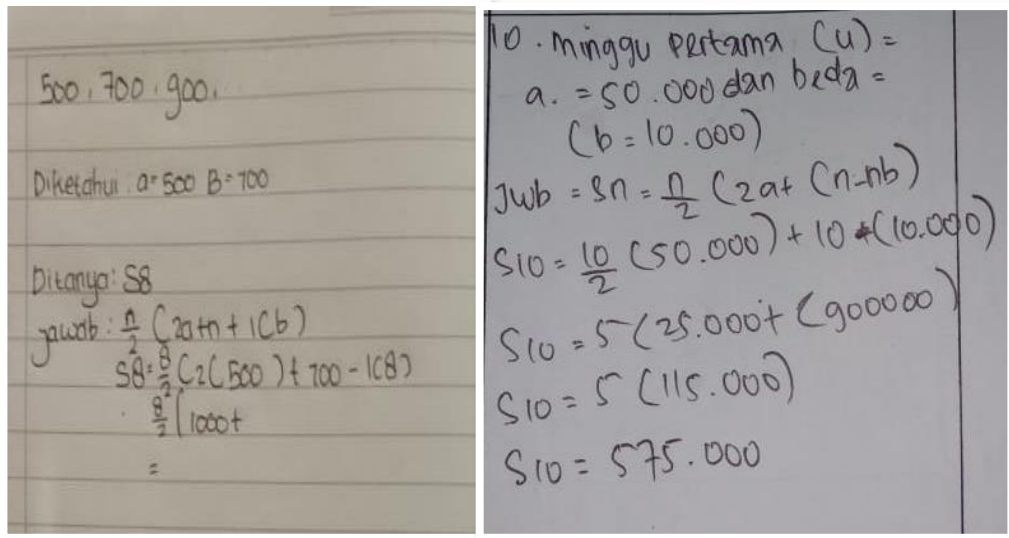 500, 700, 900,
Diketahui : a = 500 B = 700
Ditanya : S8
jawab : n/2 (2a+n + 1(b)
S8 = 8/2 (2(500) + 700 - 1(8)
8/2 (1000+
=
10. Minggu pertama (u) =
a. = 50.000 dan beda =
(b = 10.000)
Jwb = Sn = n/2 (2a+ (n-nb)
S10 = 10/2 (50.000) + 10 + (10.000)
S10 = 5 (25.000+ (900000)
S10 = 5 (115.000)
S10 = 575.000